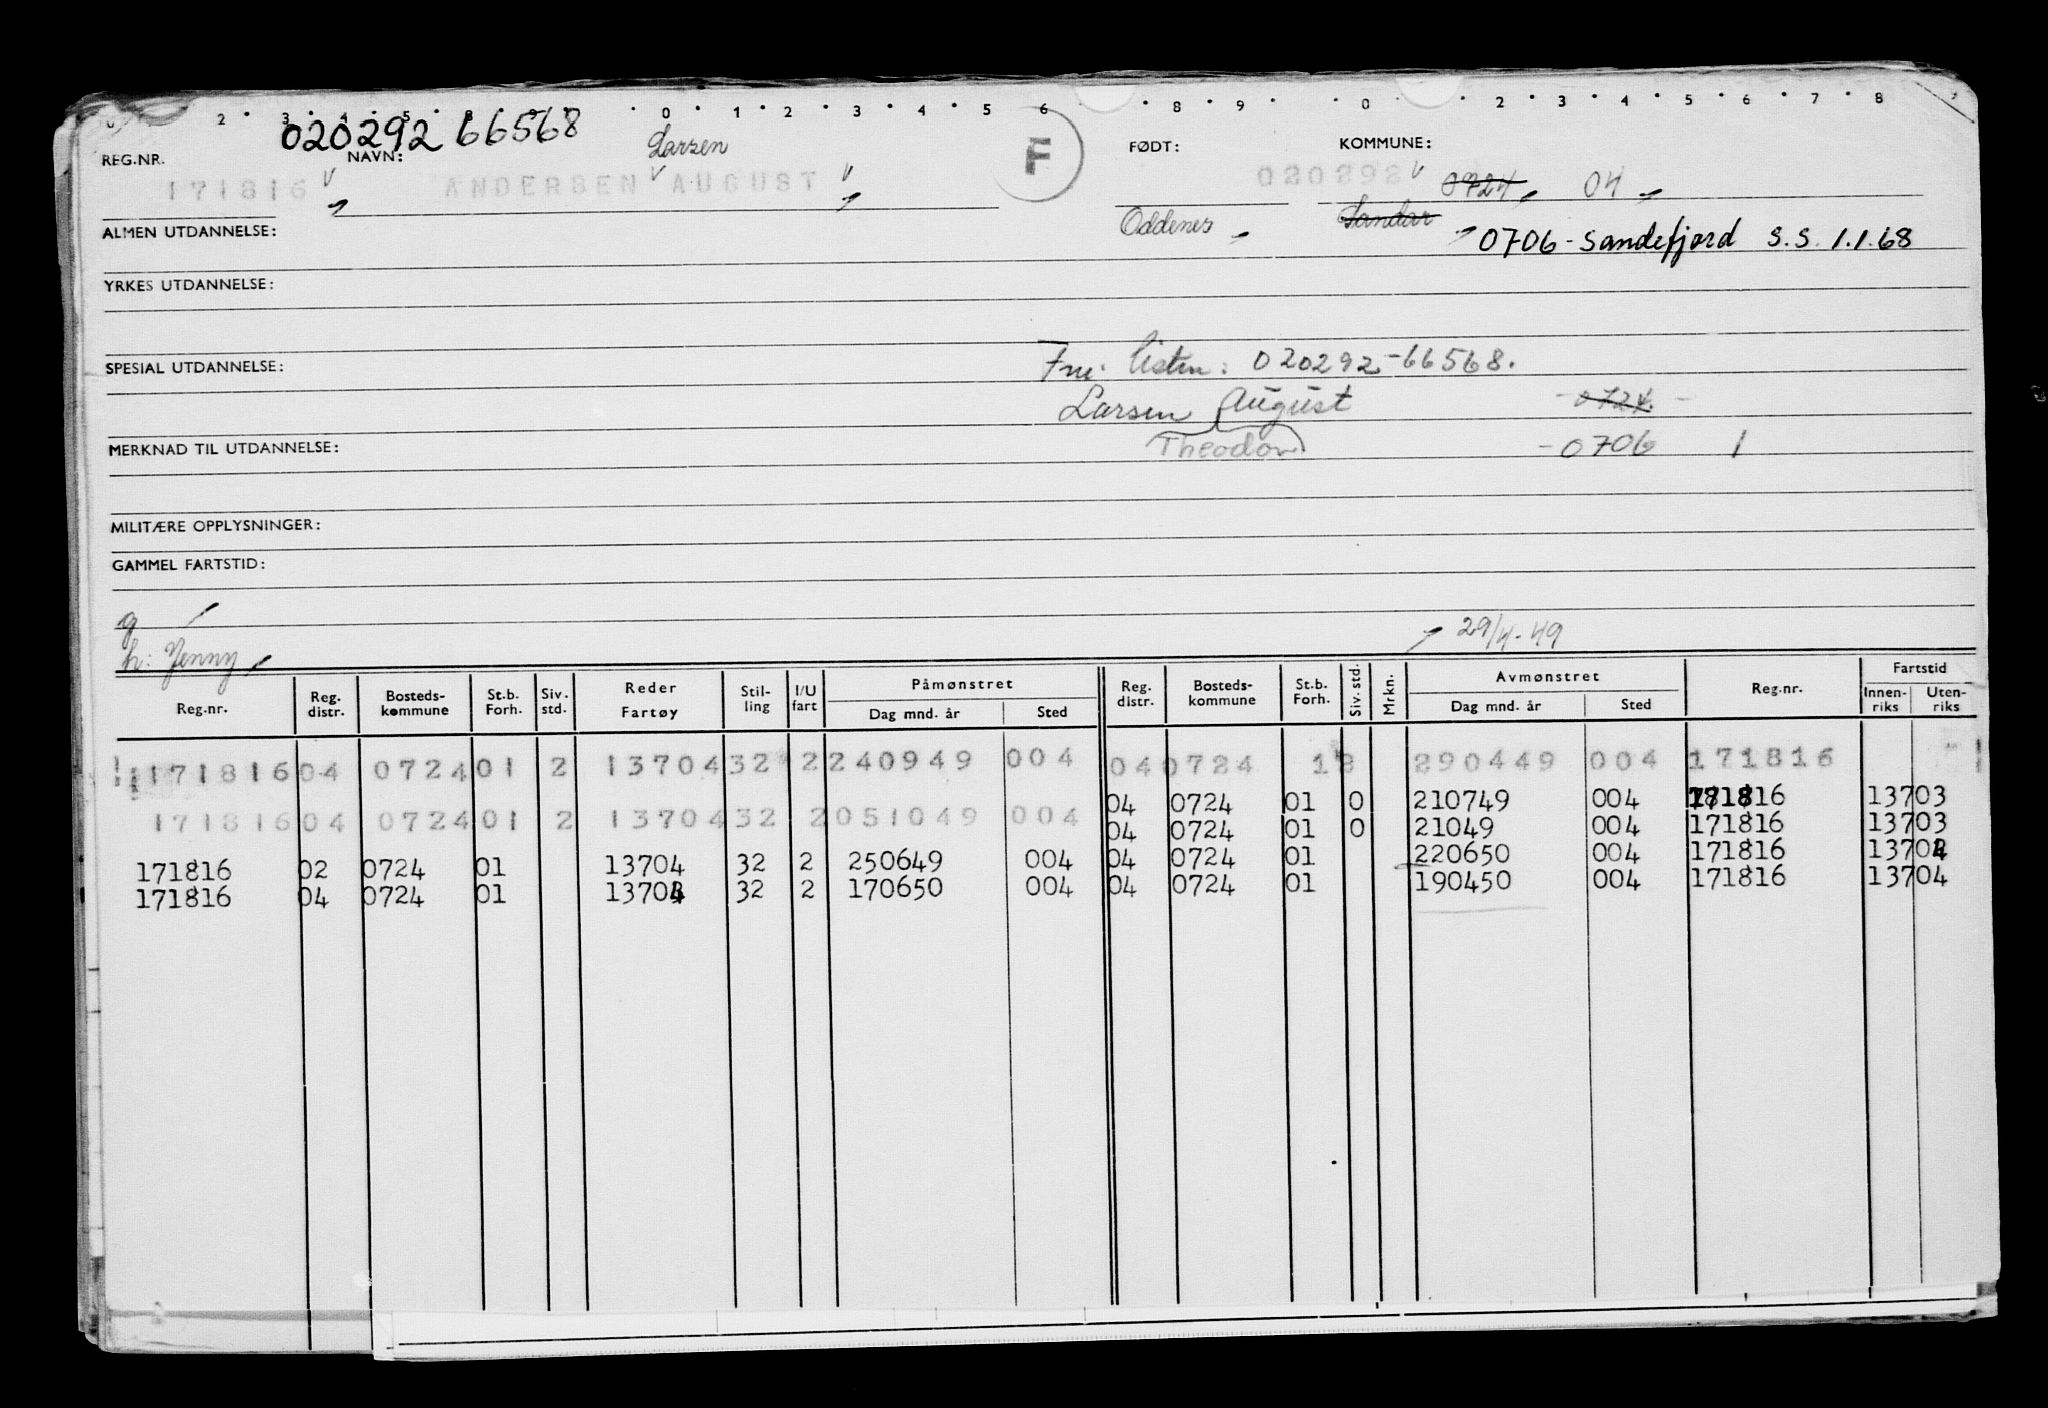 2 3 4 5 8 0 1 2 3 4 5 6 8 9 0 2 3 4 5 6 7 8
020292 66568
REG.NR. NAVN: Larsen F FØDT: KOMMUNE:
171816 ANDERSEN AUGUST 020292 0724 04
Oddenes Sandar
ALMEN UTDANNELSE: 0706 - Sandefjord S.S. 1.1.68
YRKES UTDANNELSE:
SPESIAL UTDANNELSE: listen: 020292-66568.
Larsen August 0724.
MERKNAD TIL UTDANNELSE: Theodor - 0706 1
MILITÆRE OPPLYSNINGER:
GAMMEL FARTSTID:
g
h: Jenny 29/4-49
Reg.nr. Reg. distr. Bosteds- kommune St.b. Forh. Siv. std. Reder Fartøy Stil- ling I/U fart Påmønstret Dag mnd. år Sted Reg. distr. Bosteds- kommune St.b. Forh. Siv. std. Mrkn. Avmønstret Dag mnd. år Sted Reg.nr. Fartstid Innen- riks Uten- riks
171816 04 0724 01 2 13704 32 2 240949 004 04 0724 18 290449 004 171816
04 0724 01 0 210749 004 171816 13703
171816 04 0724 01 2 13704 32 2 051049 004 04 0724 01 0 21049 004 171816 13703
171816 02 0724 01 13704 32 2 250649 004 04 0724 01 220650 004 171816
171816 04 0724 01 32 2 170650 004 04 0724 01 190450 004 171816 13704